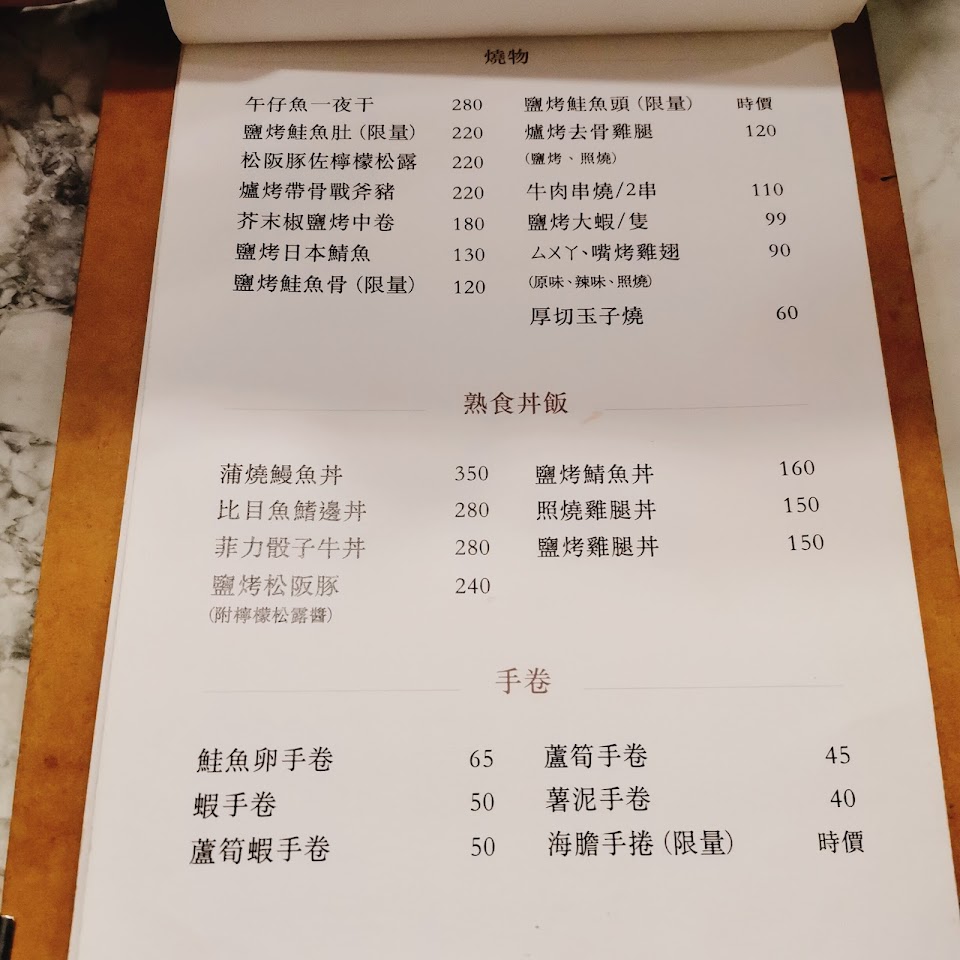 燒物
午仔魚一夜干 280 鹽烤鮭魚頭(限量) 時價
鹽烤鮭魚肚(限量) 220 爐烤去骨雞腿 120
松阪豚佐檸檬松露 220 (鹽烤、照燒)
爐烤帶骨戰斧豬 220 牛肉串燒/2串 110
芥末椒鹽烤中卷 180 鹽烤大蝦/隻 99
鹽烤日本鯖魚 130 ㄙㄨㄚˋ嘴烤雞翅 90
鹽烤鮭魚骨(限量) 120 (原味、辣味、照燒)
厚切玉子燒 60
熟食丼飯
蒲燒鰻魚丼 350 鹽烤鯖魚丼 160
比目魚鰭邊丼 280 照燒雞腿丼 150
菲力骰子牛丼 280 鹽烤雞腿丼 150
鹽烤松阪豚 240
(附檸檬松露醬)
手卷
鮭魚卵手卷 65 蘆筍手卷 45
蝦手卷 50 薯泥手卷 40
蘆筍蝦手卷 50 海膽手捲(限量) 時價